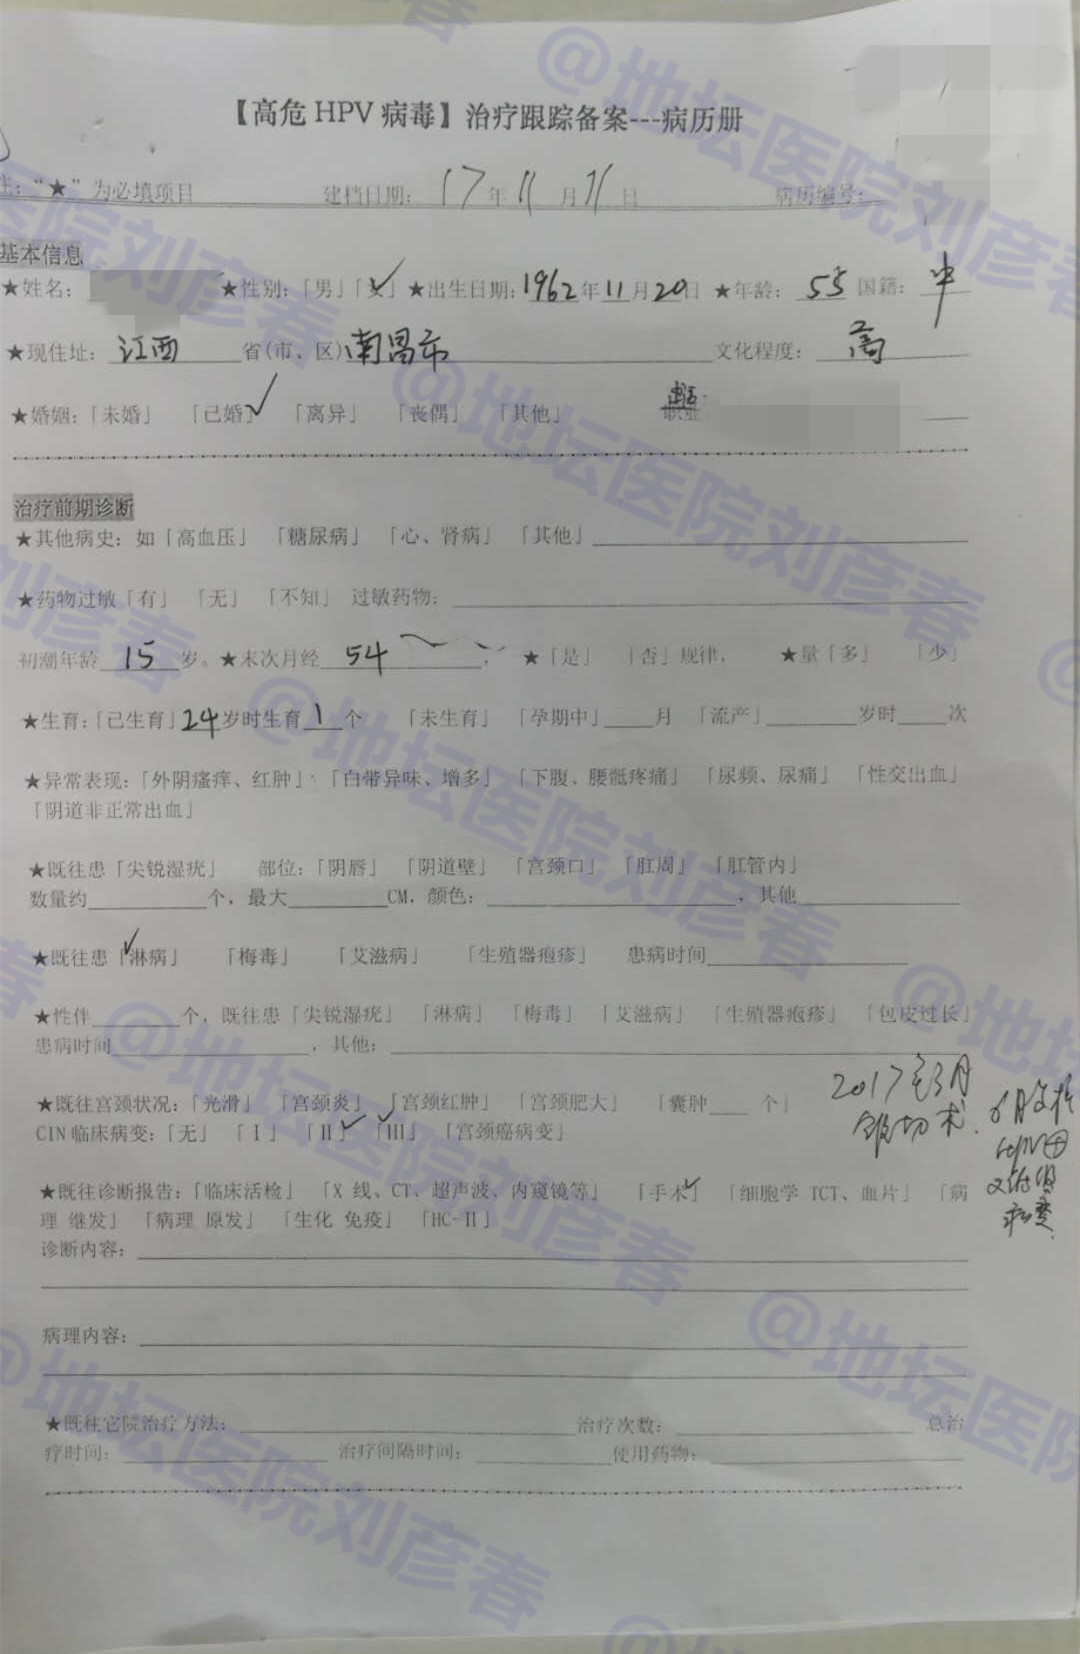 【高危 HPV 病毒】治疗跟踪备案---病历册
注：“★”为必填项目 建档日期： 17年11月11日 病历编号：
基本信息
★姓名： ★性别：「男」「女」✓ ★出生日期：1962年11月20日 ★年龄： 55 国籍： 中
★现住址： 江西 省(市、区) 南昌市 文化程度： 高
★婚姻：「未婚」 「已婚」✓ 「离异」 「丧偶」 「其他」 职业
治疗前期诊断
★其他病史：如「高血压」 「糖尿病」 「心、肾病」 「其他」
★药物过敏「有」 「无」 「不知」 过敏药物：
初潮年龄 15 岁。★末次月经 54 ， ★「是」 「否」规律， ★量「多」 「少」
★生育：「已生育」24岁时生育 1 个 「未生育」 「孕期中」 月 「流产」 岁时 次
★异常表现：「外阴瘙痒、红肿」 「白带异味、增多」 「下腹、腰骶疼痛」 「尿频、尿痛」 「性交出血」
「阴道非正常出血」
★既往患「尖锐湿疣」 部位：「阴唇」 「阴道壁」 「宫颈口」 「肛周」 「肛管内」
数量约 个，最大 CM，颜色： ，其他
★既往患「淋病」✓ 「梅毒」 「艾滋病」 「生殖器疱疹」 患病时间
★性伴 个，既往患「尖锐湿疣」 「淋病」 「梅毒」 「艾滋病」 「生殖器疱疹」 「包皮过长」
患病时间 ，其他：
★既往宫颈状况：「光滑」 「宫颈炎」 「宫颈红肿」 「宫颈肥大」 「囊肿 个」
CIN 临床病变：「无」 「I」 「II」✓ 「III」✓ 「宫颈癌病变」
2017年3月
锥切术.
6月复检
HPV⊕
病变
★既往诊断报告：「临床活检」 「X 线、CT、超声波、内窥镜等」 「手术」✓ 「细胞学 TCT、血片」 「病
理 继发」 「病理 原发」 「生化 免疫」 「HC-II」
诊断内容：
病理内容：
★既往它院治疗方法： 治疗次数： 总治
疗时间： 治疗间隔时间： 使用药物：
@地坛医院刘彦春